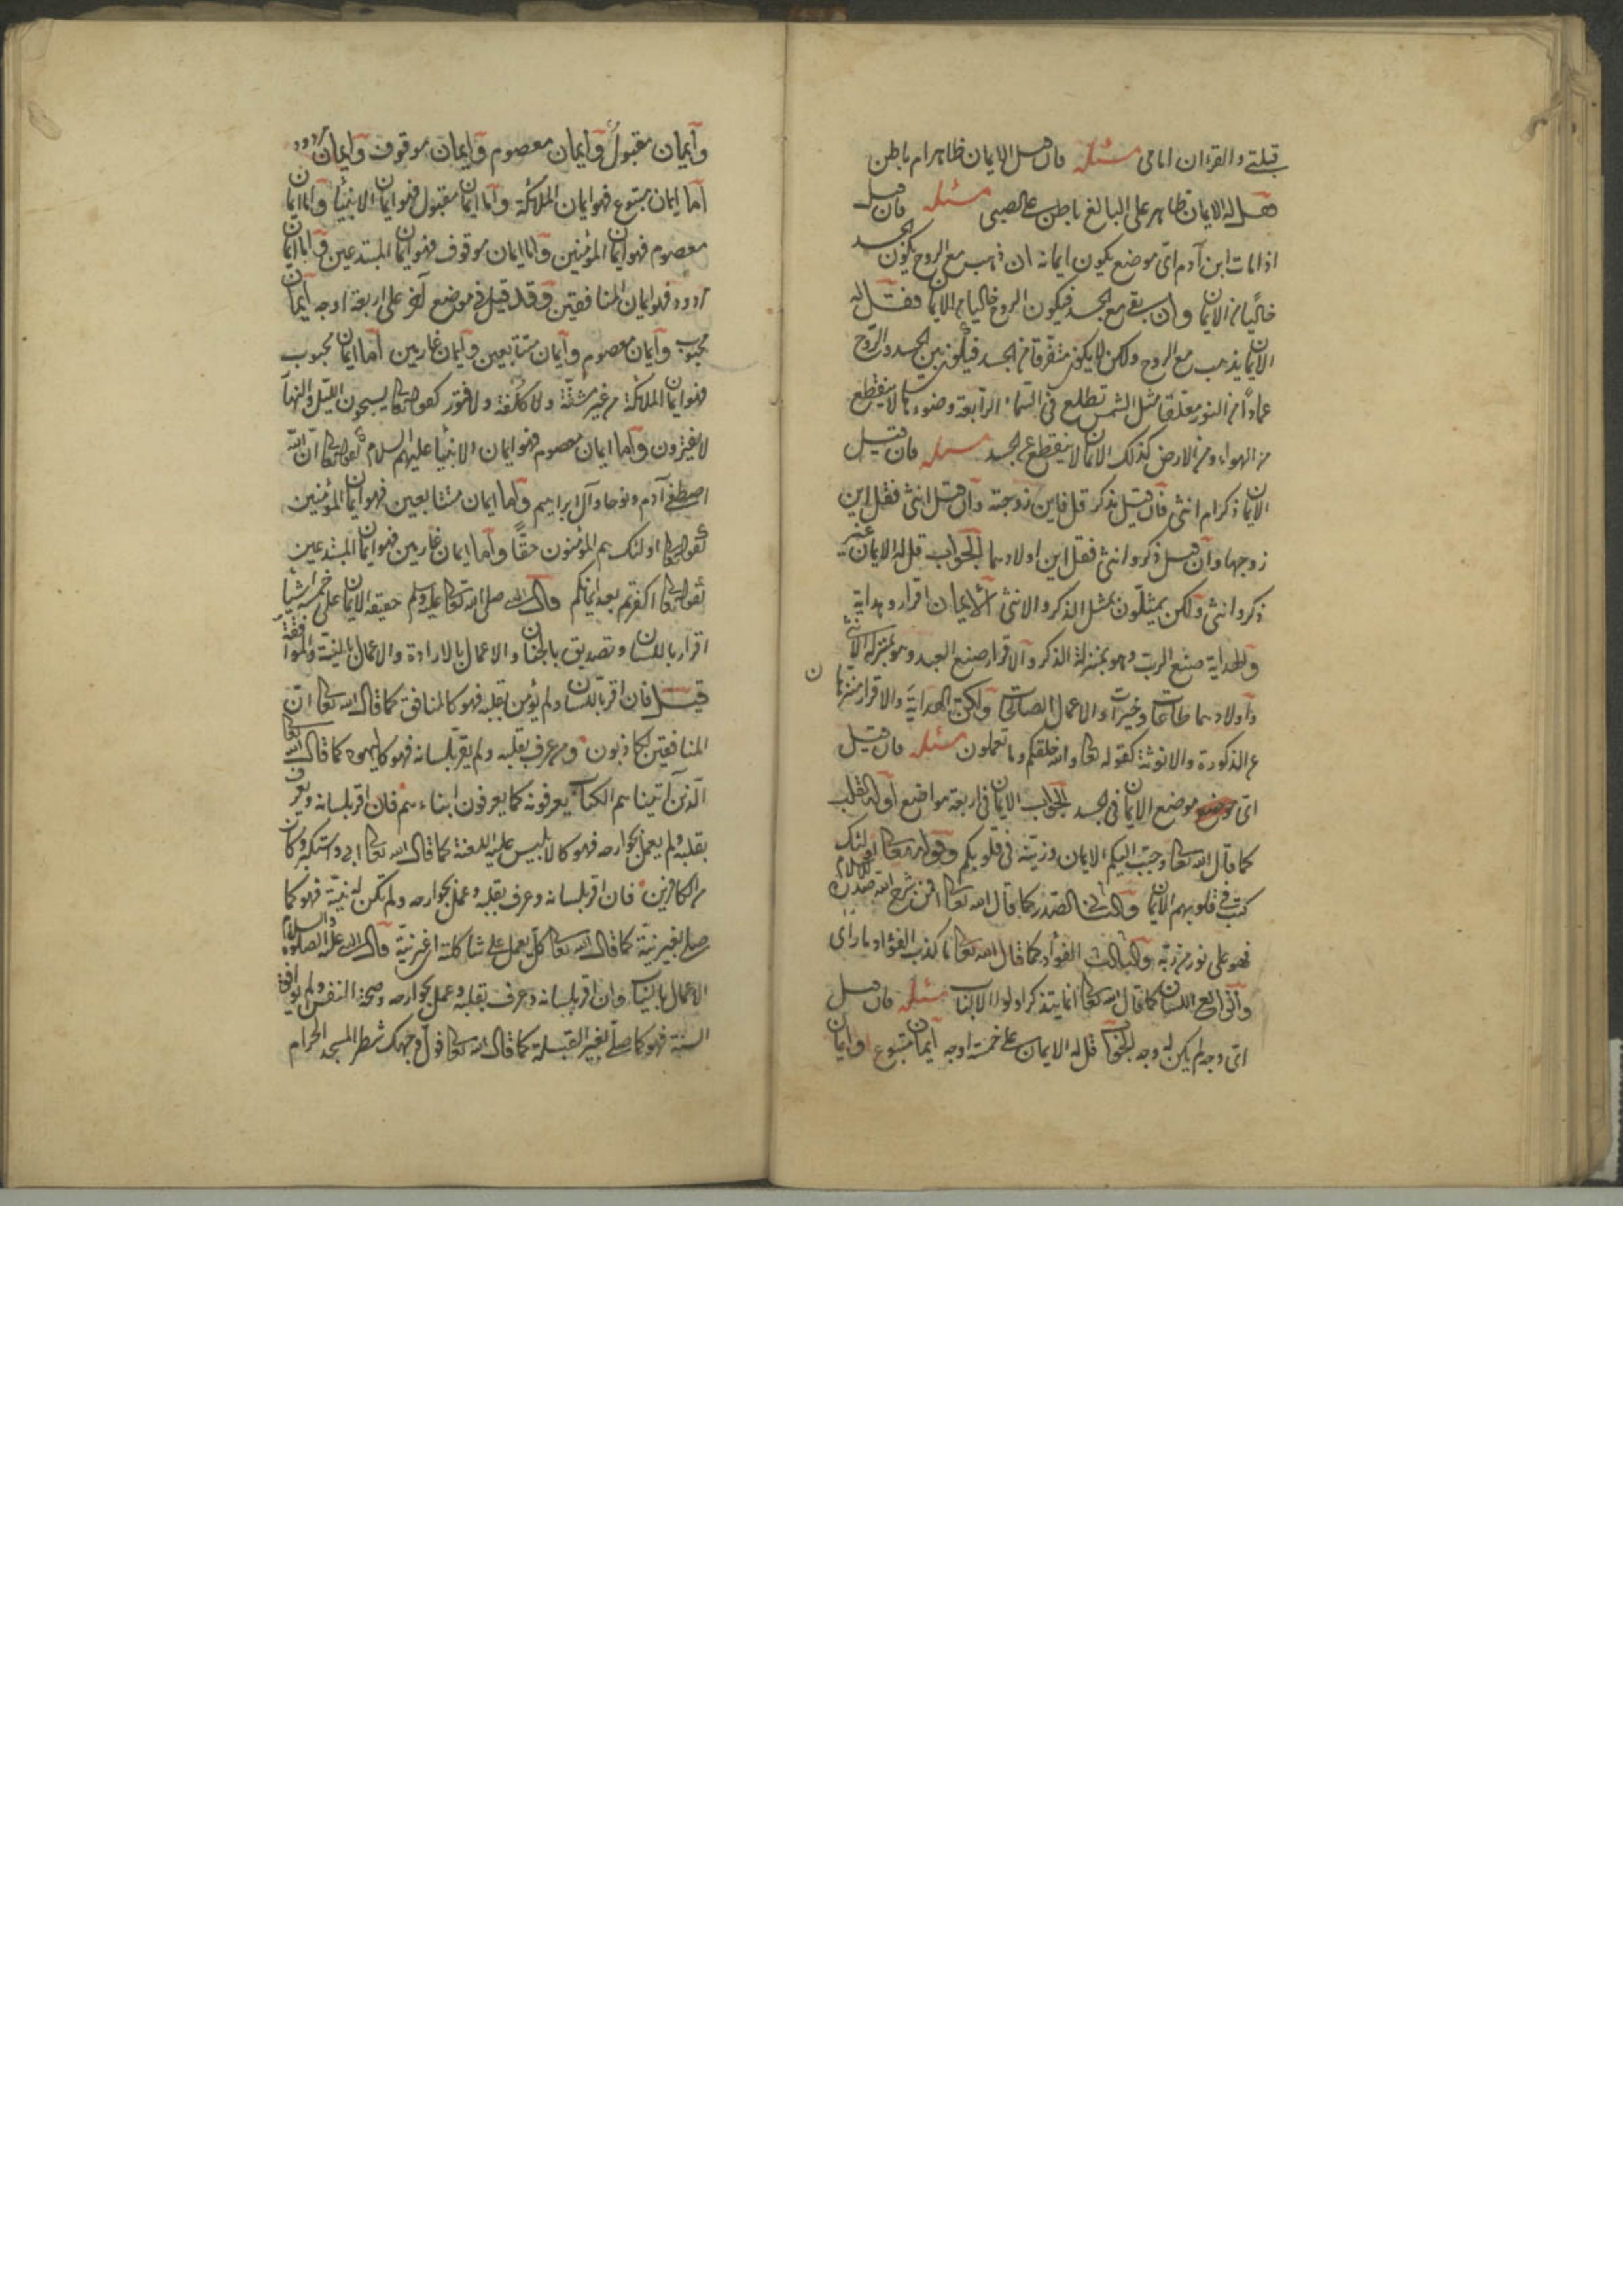 قبلتي والقرءان امامى مسئله فان قيل الايمان ظاهر ام باطن
فقل له الايمان ظاهر على البالغ باطن على الصبى مسئله فان قيل
اذا مات ابن آدم اىّ موضع يكون ايمانه ان ذهب مع الروح يكون الجسد
خاليًا من الايمان وان بقى مع الجسد فيكون الروح خاليا من الايمان فقل له
الايمان يذهب مع الروح ولكن لا يكون متفرقا من الجسد فيكون بين الجسد والروح
عمادًا من النور معلّقا مثل الشمس تطلع فى السّماء الرّابعة وضوءها لا ينقطع
من الهواء ومن الارض كذلك الايمان لا ينقطع عن الجسد مسئله فان قيل
الايمان ذكر ام انثى فان قيل ذكر قل فاين زوجته وان قيل انثى فقل اين
زوجها وان قيل ذكر وانثى فقل اين اولادهما الجواب قل له الايمان غير
ذكر وانثى ولكن يمثّلون بمثل الذكر والانثى الايمان اقرار وهداية
والهداية صنع الربّ وهو بمنزلة الذكر والاقرار صنع العبد وهو بمنزلة الانثى
واولادهما طاعات وخيرات والاعمال الصالحات ولكن الهداية والاقرار منزهان
عن الذكورة والانوثة كقوله تعالى والله خلقكم وما تعملون مسئله فان قيل
اىّ موضع موضع الايمان فى الجسد الجواب الايمان فى اربعة مواضع اوله القلب
كما قال الله تعالى وحبّب اليكم الايمان وزيّنه فى قلوبكم وقوله تعالى اولئك
كتب فى قلوبهم الايمان والثانى الصّدر كما قال الله تعالى افمن شرح الله صدره للاسلام
فهو على نور من ربّه والثالث الفؤاد كما قال الله تعالى ما كذب الفؤاد ما راى
والرابع اللسان كما قال الله تعالى انما يتذكر اولوا الالباب مسئله فان قيل
اىّ وجه لم يكن له وجه الجواب قل له الايمان على خمسة اوجه ايمان متبوع وايمان
وايمان مقبول وايمان معصوم وايمان موقوف وايمان مردود
اما ايمان متبوع فهو ايمان الملائكة واما ايمان مقبول فهو ايمان الانبياء واما ايمان
معصوم فهو ايمان المؤمنين واما ايمان موقوف فهو ايمان المبتدعين واما ايمان
مردود فهو ايمان المنافقين وقد قيل فى موضع آخر على اربعة اوجه ايمان
محبوب وايمان معصوم وايمان متتابعين وايمان عاريين اما ايمان محبوب
فهو ايمان الملائكة من غير مشقّة ولا كلفة ولا فتور كقوله تعالى يسبحون الليل والنهار
لا يفترون واما ايمان معصوم فهو ايمان الانبياء عليهم السلام كقوله تعالى ان الله
اصطفى آدم ونوحا وآل ابراهيم واما ايمان متتابعين فهو ايمان المؤمنين
كقوله تعالى اولئك هم المؤمنون حقًّا واما ايمان عاريين فهو ايمان المبتدعين
كقوله تعالى اكفرتم بعد ايمانكم قال النبى صلى الله تعالى عليه وسلم حقيقة الايمان على خمسة اشياء
اقرار باللسان وتصديق بالجنان والاعمال بالارادة والاعمال بالنية والموافقة
قيل فان اقر باللسان ولم يؤمن بقلبه فهو كالمنافق كما قال الله تعالى انّ
المنافقين لكاذبون ومن عرف بقلبه ولم يقر بلسانه فهو كاليهود كما قال الله تعالى
الّذين آتيناهم الكتاب يعرفونه كما يعرفون ابناءهم فان اقر بلسانه ويعرف
بقلبه ولم يعمل بجوارحه فهو كالابليس عليه اللعنة كما قال الله تعالى ابى واستكبر وكان
من الكافرين فان اقر بلسانه وعرف بقلبه وعمل بجوارحه ولم تكن له نيّة فهو كما
صلى بغير نيّة كما قال الله تعالى كلّ يعمل على شاكلته اى نيّة قال النبى عليه الصلوة والسلام
الاعمال بالنيات وان اقر بلسانه وعرف بقلبه وعمل بجوارحه وصحة النفس ولم يوافق
السنة فهو كما صلّى بغير القبلة كما قال الله تعالى فولّ وجهك شطر المسجد الحرام